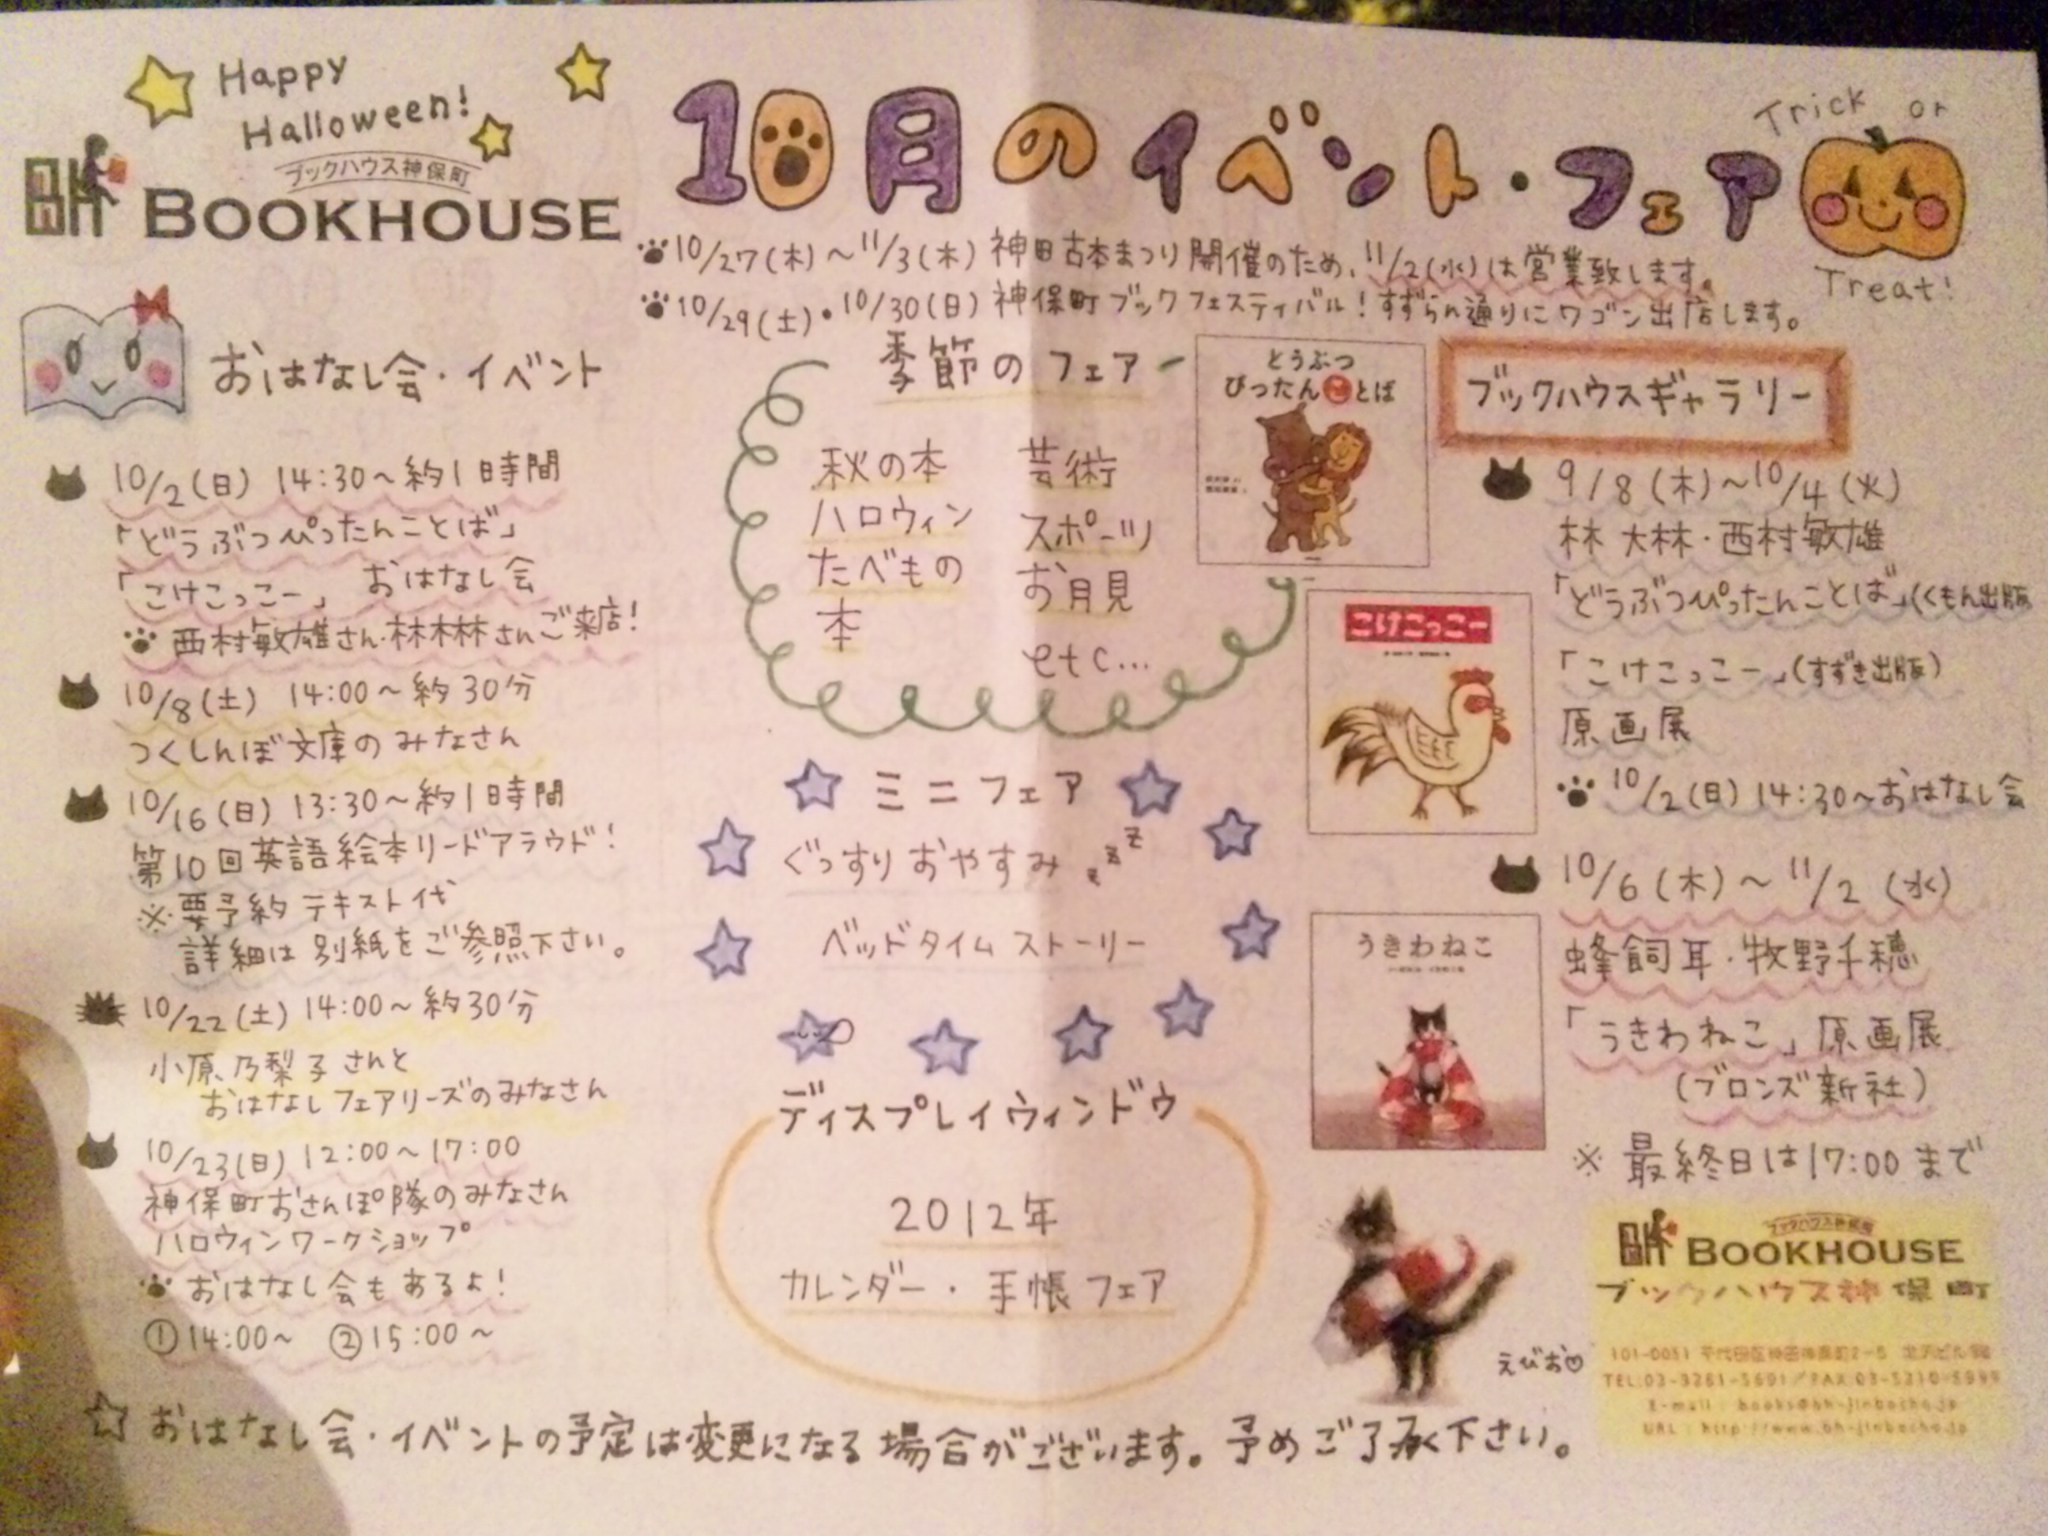 Happy
Halloween!
ブックハウス神保町
BOOKHOUSE
10月のイベント・フェア
Trick or
Treat!
10/27(木)~11/3(木) 神田古本まつり開催のため、11/2(水)は営業致します。
10/29(土)・10/30(日) 神保町ブックフェスティバル!すずらん通りにワゴン出店します。
おはなし会・イベント
10/2(日) 14:30~約1時間
「どうぶつぴったんことば」
「こけこっこー」 おはなし会
西村敏雄さん・林木林さんご来店!
10/8(土) 14:00~約30分
つくしんぼ文庫のみなさん
10/16(日) 13:30~約1時間
第10回英語絵本リードアラウド!
※要予約 テキスト代
詳細は別紙をご参照下さい。
10/22(土) 14:00~約30分
小原乃梨子さんと
おはなしフェアリーズのみなさん
10/23(日) 12:00~17:00
神保町おさんぽ隊のみなさん
ハロウィンワークショップ
おはなし会もあるよ!
①14:00~ ②15:00~
季節のフェア
秋の本
ハロウィン
たべもの
本
芸術
スポーツ
お月見
etc...
ミニフェア
ぐっすりおやすみ zzz
ベッドタイムストーリー
ディスプレイウィンドウ
2012年
カレンダー・手帳フェア
どうぶつ
ぴったんことば
こけこっこー
うきわねこ
ブックハウスギャラリー
9/8(木)~10/4(火)
林 木林・西村敏雄
「どうぶつぴったんことば」(くもん出版
「こけこっこー」(すずき出版)
原画展
10/2(日) 14:30~おはなし会
10/6(木)~11/2(水)
蜂飼耳・牧野千穂
「うきわねこ」原画展
(ブロンズ新社)
※最終日は17:00まで
えびお♡
ブックハウス神保町
BOOKHOUSE
ブックハウス神保町
101-0051 千代田区神田神保町2-5 北沢ビル1階
TEL:03-3261-5691/FAX:03-3210-5999
E-mail : books@bh-jinbocho.jp
URL : http://www.bh-jinbocho.jp
☆おはなし会・イベントの予定は変更になる場合がございます。予めご了承下さい。